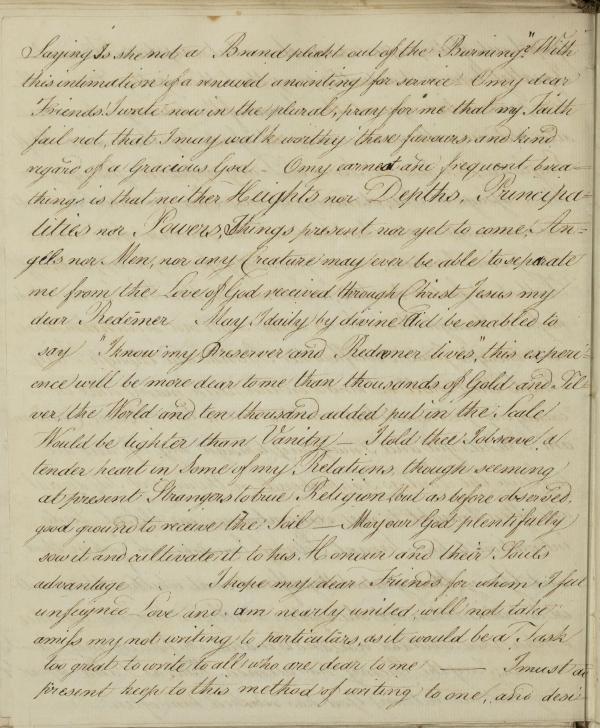 Saying Is she not a Brand pluckt out of the Burning?" With
this intimation of a renewed anointing for service – O my dear
Friends I wrote now in the plural, pray for me that my Faith
fail not, that I may walk worthy these favours, and kind
regard of a Gracious God – O my earnest and frequent brea=
things is that neither Heights nor Depths, Principa=
lities nor Powers, Things present nor yet to come, An=
gels nor Men, nor any Creature may ever be able to seperate
me from the Love of God received through Christ Jesus my
dear Redemer May I daily by divine Aid be enabled to
say "I know my Preserver and Redemer lives", this experi=
ence will be more dear to me than thousands of Gold and Sil=
ver, the World and ten thousand added put in the Scale
Would be lighter than Vanity – I told thee I observe a
tender heart in Some of my Relations, though seeming
at present Strangers to true Religion, but as before observed.
good ground to receive the Soil – May our God plentifully
sow it and cultivate it to his Honour and their Souls
advantage. I hope my dear Friends for whom I feel
unfeigned Love and am nearly united, will not take
amiss my not writing to particulars, as it would be a Task
too great to write to all who are dear to me — I must at
present keep to this method of writing to one, and desi=